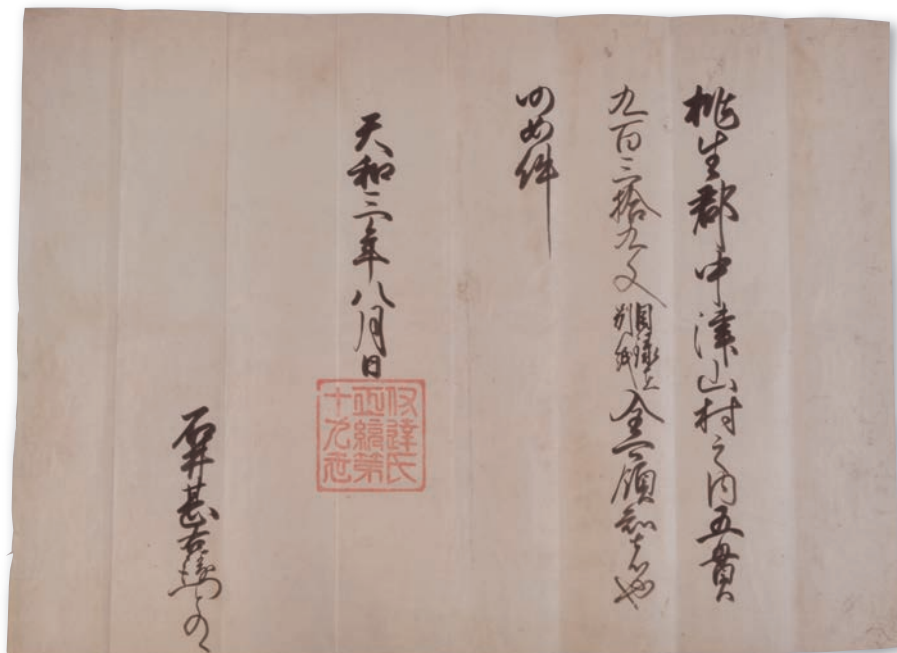 桃生郡中津山村之内五貫
九百三拾九文目録在別紙全可領知者也
仍如件
天和三年八月日
伊達氏
正統第
十九世
石井甚右衛門との